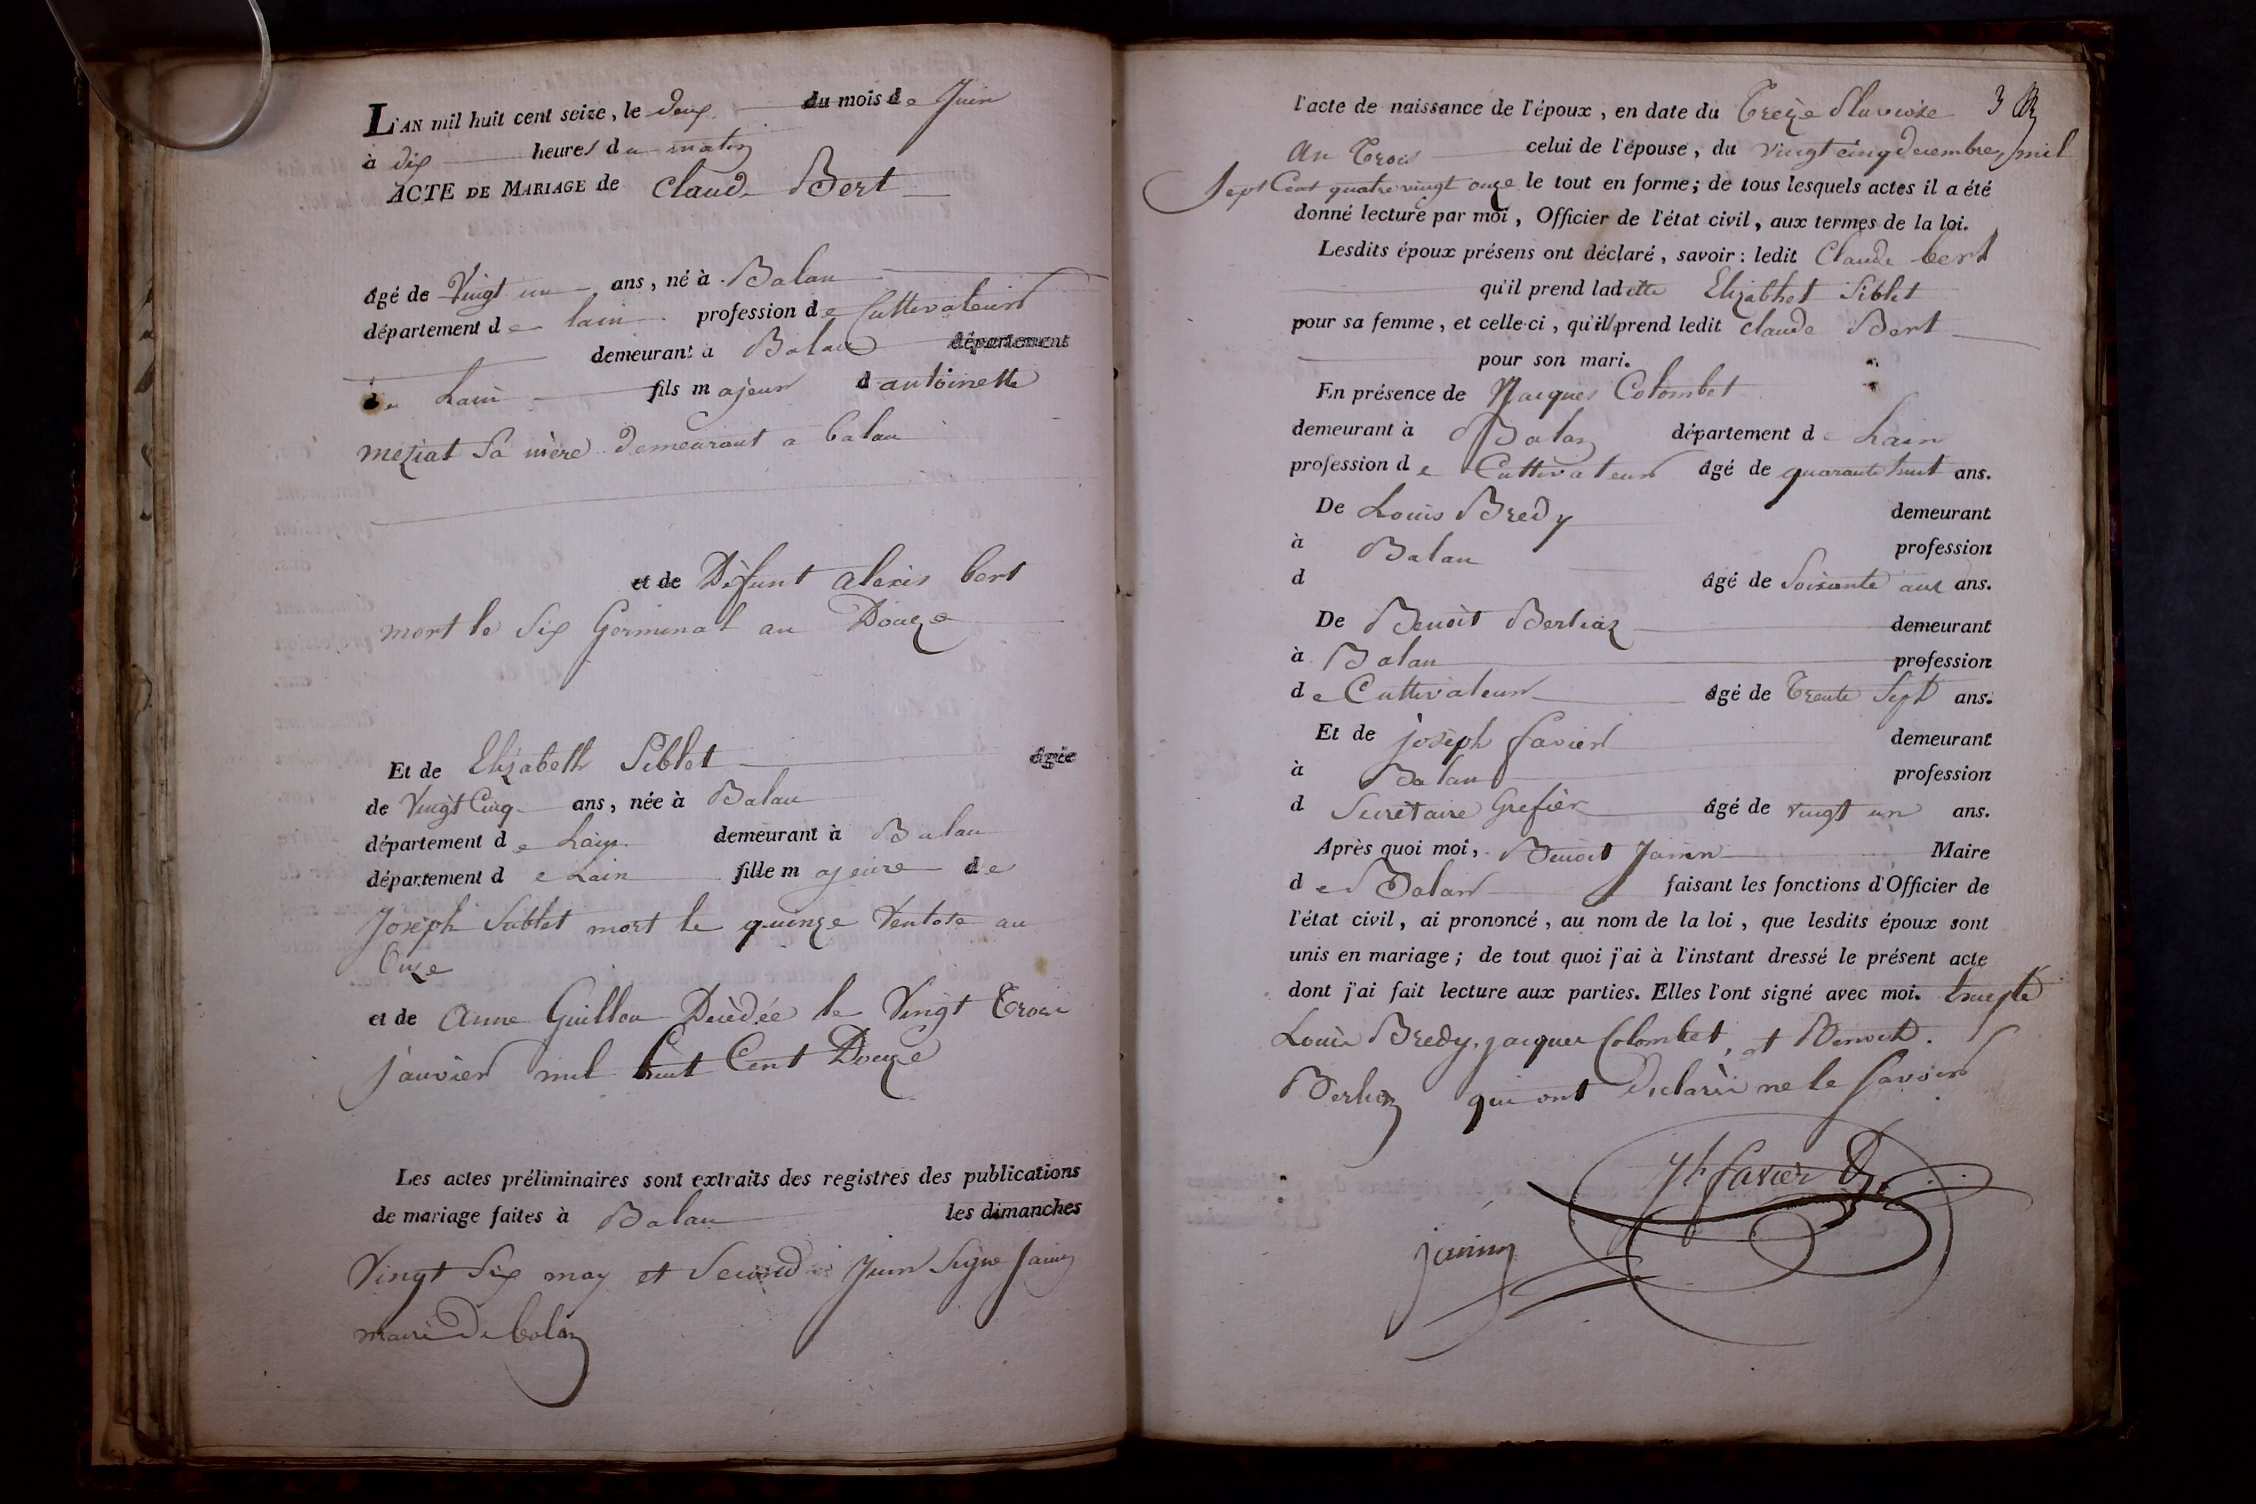 L'AN mil huit cent seize, le deux du mois de Juin
à dix heures du matin
ACTE DE MARIAGE de Claude Bert
âgé de Vingt un ans, né à Balan
département de lain profession de Cultivateur
demeurant à Balan département
de Lain fils majeur d antoinette
meziat Sa mère demeurant a balan
et de Défunt alexis bert
mort le Six Germinal an Douze
Et de Elizabeth Siblet âgée
de Vingt Cinq ans, née à Balan
département de Lain demeurant à Balan
département de Lain fille majeure de
Joseph Siblet mort le quinze Ventose an
Onze
et de Anne Guillon Décédée le Vingt Trois
janvier mil huit Cent Douze
Les actes préliminaires sont extraits des registres des publications
de mariage faites à Balan les dimanches
Vingt Six may et Second Juin Signé Janin
maire De balan
l'acte de naissance de l'époux, en date du Treize Pluviose 3
An Trois celui de l'épouse, du vingt cinq decembre mil
Sept Cent quatre vingt onze le tout en forme; de tous lesquels actes il a été
donné lecture par moi, Officier de l'état civil, aux termes de la loi.
Lesdits époux présens ont déclaré, savoir: ledit Claude bert
qu'il prend ladette Elizabhet Siblet
pour sa femme, et celle-ci, qu'il prend ledit claude Bert
pour son mari.
En présence de Jacques Colombet
demeurant à Balan département de Lain
profession de Cultivateur âgé de quarante huit ans.
De Louis Bredy demeurant
à Balan profession
d âgé de Soixante ans ans.
De Benoit Berliaz demeurant
à Balan profession
de Cultivateur âgé de Trente Sept ans.
Et de joseph favier demeurant
à Balan profession
d Secretaire Grefièr âgé de vingt un ans.
Après quoi moi, Benoit Janin Maire
de Balan faisant les fonctions d'Officier de
l'état civil, ai prononcé, au nom de la loi, que lesdits époux sont
unis en mariage; de tout quoi j'ai à l'instant dressé le présent acte
dont j'ai fait lecture aux parties. Elles l'ont signé avec moi.
Louis Bredy, jacques Colombet, et Benoit
qui ont declaré ne le Savoir
Jh favier
janin